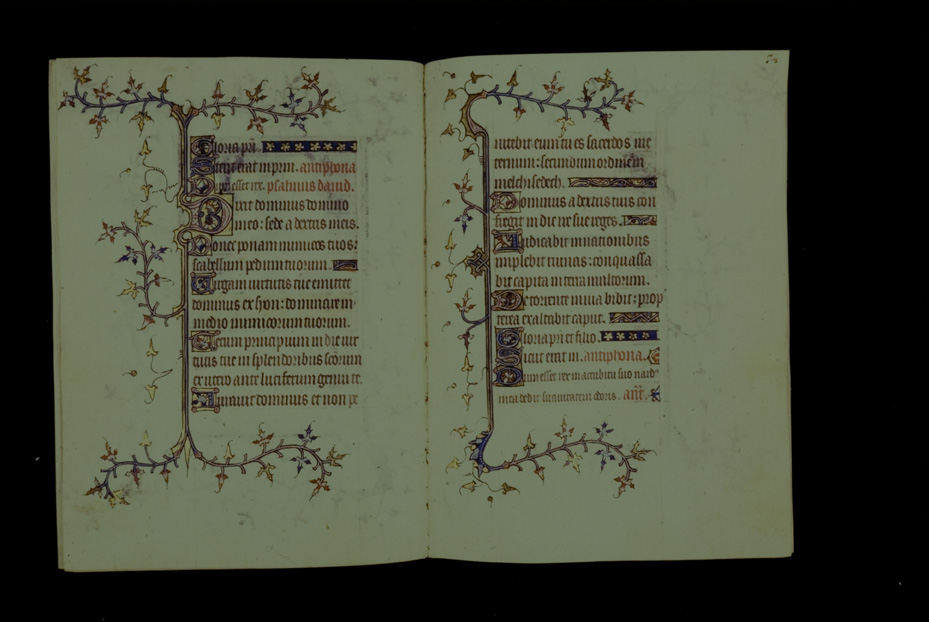 Gloria pri.
Sicut erat in prin. antiphona
Dum esset rex. psalmus david.
Dixit dominus domino
meo: sede a dextris meis.
Donec ponam inimicos tuos:
scabellum pedum tuorum.
Virgam virtutis tue emittet
dominus ex syon: dominare in
medio inimicorum tuorum.
Tecum principium in die vir
tutis tue in splendoribus scorum
ex utero ante luciferum genui te.
Iuravit dominus et non pe
nitebit eum tu es sacerdos in e
ternum: secundum ordinem
melchisedech.
Dominus a dextris tuis con
fregit in die ire sue reges.
Iudicabit in nationibus
implebit ruinas: conquassa
bit capita in terra multorum.
De torrente in via bibit: prop
terea exaltabit caput.
Gloria pri et filio.
Sicut erat in. antiphona.
Dum esset rex in accubitu suo nard
mea dedit suavitatem odoris. ant.